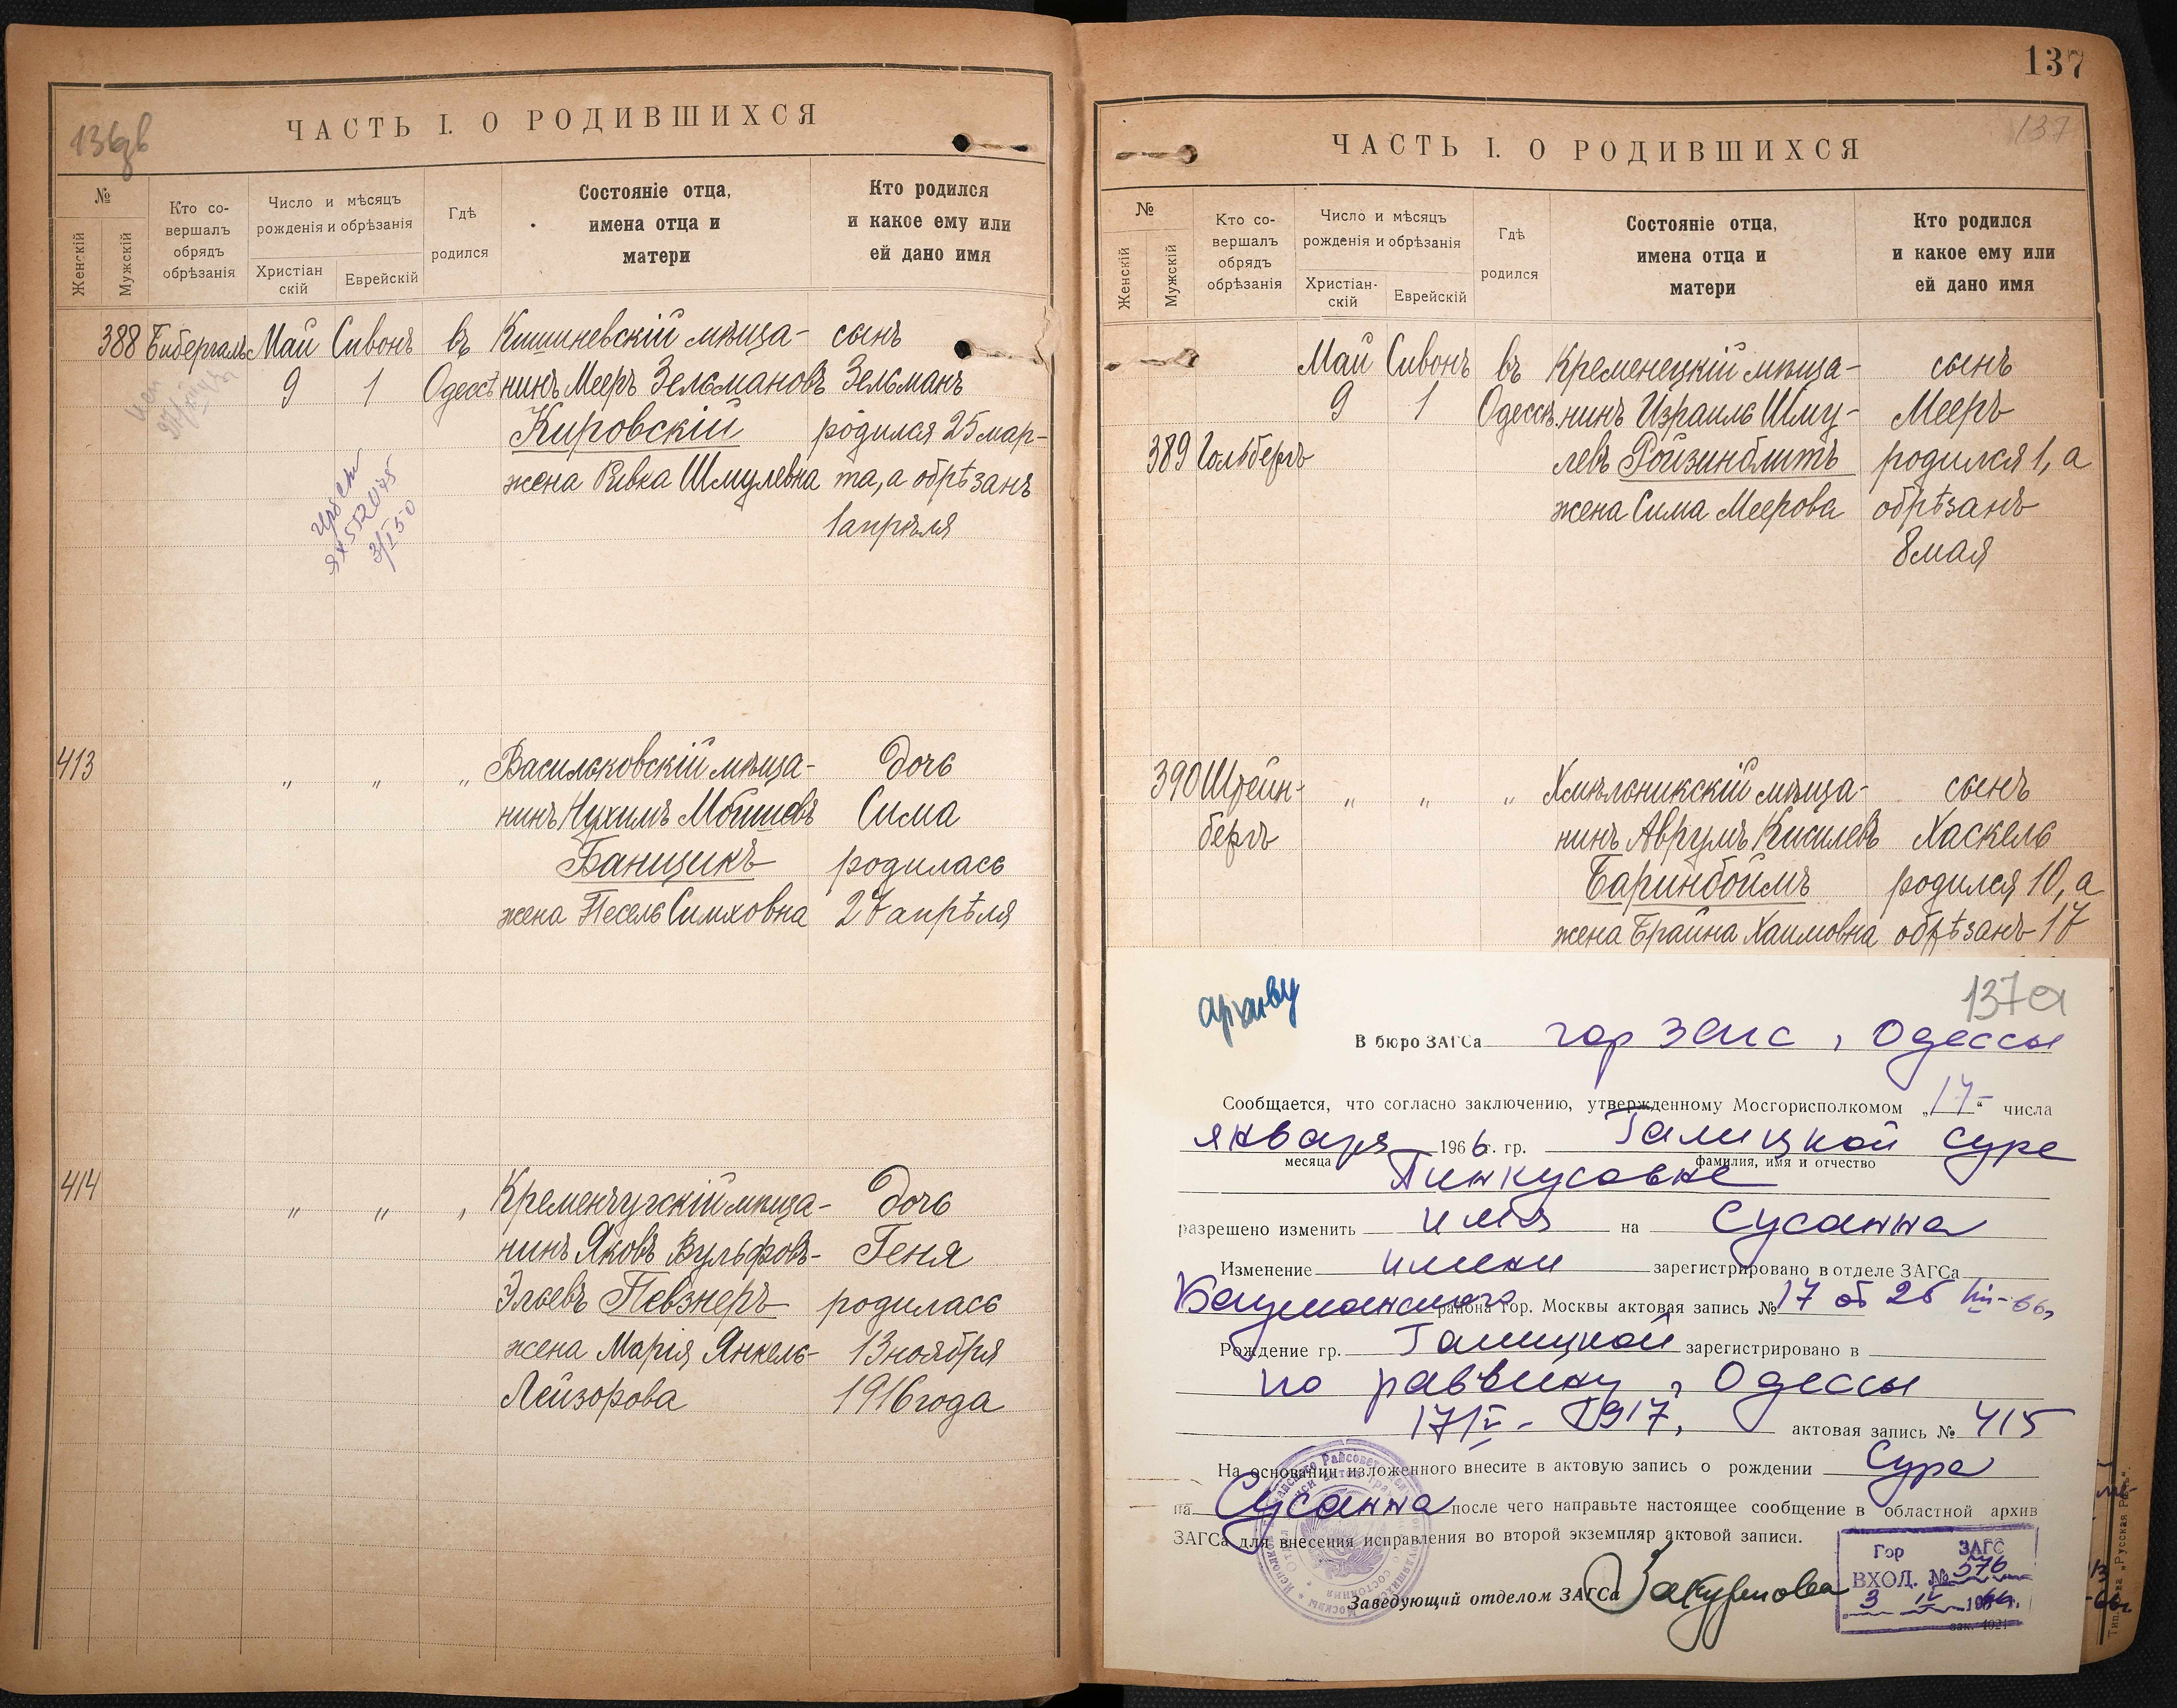 136об
ЧАСТЬ I. О РОДИВШИХСЯ
№
Женскій
Мужскій
Кто со-
вершалъ
обрядъ
обрѣзанія
Число и мѣсяцъ
рожденія и обрѣзанія
Христіан
скій
Еврейскій
Гдѣ
родился
Состояніе отца,
имена отца и
матери
Кто родился
и какое ему или
ей дано имя
388 Бибергаль Май Сивонъ въ Кишиневскій мѣща- сынъ
9 1 Одессѣ нинъ Мееръ Зельмановъ Зельманъ
Кировскій родился 25 мар-
жена Ривка Шмулевна та, а обрѣзанъ
1 апрѣля
3/I 50
413 " " " Васильковскій мѣща- дочь
нинъ Нухимъ Мошковъ Сима
Банщикъ родилась
жена Песель Симховна 27 апрѣля
414 " " " Кременчугскій мѣща- дочь
нинъ Яковъ Вульфовъ- Геня
Эльевъ Певзнеръ родилась
жена Марія Янкель- 13 ноября
Лейзорова 1916 года
137
137
ЧАСТЬ I. О РОДИВШИХСЯ
№
Женскій
Мужскій
Кто со-
вершалъ
обрядъ
обрѣзанія
Число и мѣсяцъ
рожденія и обрѣзанія
Христіан-
скій
Еврейскій
Гдѣ
родился
Состояніе отца,
имена отца и
матери
Кто родился
и какое ему или
ей дано имя
Май Сивонъ въ Кременецкій мѣща- сынъ
9 1 Одессѣ нинъ Израиль Шму- Мееръ
389 Гольбергъ левъ Ройзинблитъ родился 1, а
жена Сима Меерова обрѣзанъ
8 мая
390 Штейн- " " " Хмѣльникскій мѣща- сынъ
бергъ нинъ Аврумъ Кисилевъ Хаскель
Баринбоймъ родился 10, а
жена Брайна Хаимовна обрѣзанъ 17
архиву
137а
В бюро ЗАГСа гор ЗАГС г. Одессы
Сообщается, что согласно заключению, утвержденному Мосгорисполкомом „17“ числа
января 1966 г. гр. Галицкой Суре
месяца фамилия, имя и отчество
Пинкусовне
разрешено изменить имя на Сусанна
Изменение имени зарегистрировано в отделе ЗАГСа
Бауманского района гор. Москвы актовая запись № 17 от 26 III-66г
Рождение гр. Галицкой зарегистрировано в
по раввину г. Одессы
17/V - 1917г. актовая запись № 415
На основании изложенного внесите в актовую запись о рождении Сура
на Сусанна после чего направьте настоящее сообщение в областной архив
ЗАГСа для внесения исправления во второй экземпляр актовой записи.
Заведующий отделом ЗАГСа
Гор ЗАГС
ВХОД. № 576
3 IV 1966г.
зак. 4021
Тип.
„Русская Рѣчь“.